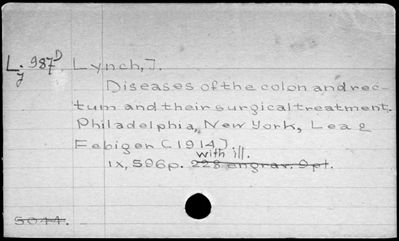 L. 987D Lynch, J.
y
Diseases of the colon and rec-
tum and their surgical treatment.
Philadelphia, New York, Lea &
Febiger [1914].
with ill.
ix, 596p. 228 engrav. 9 pl.
5044.